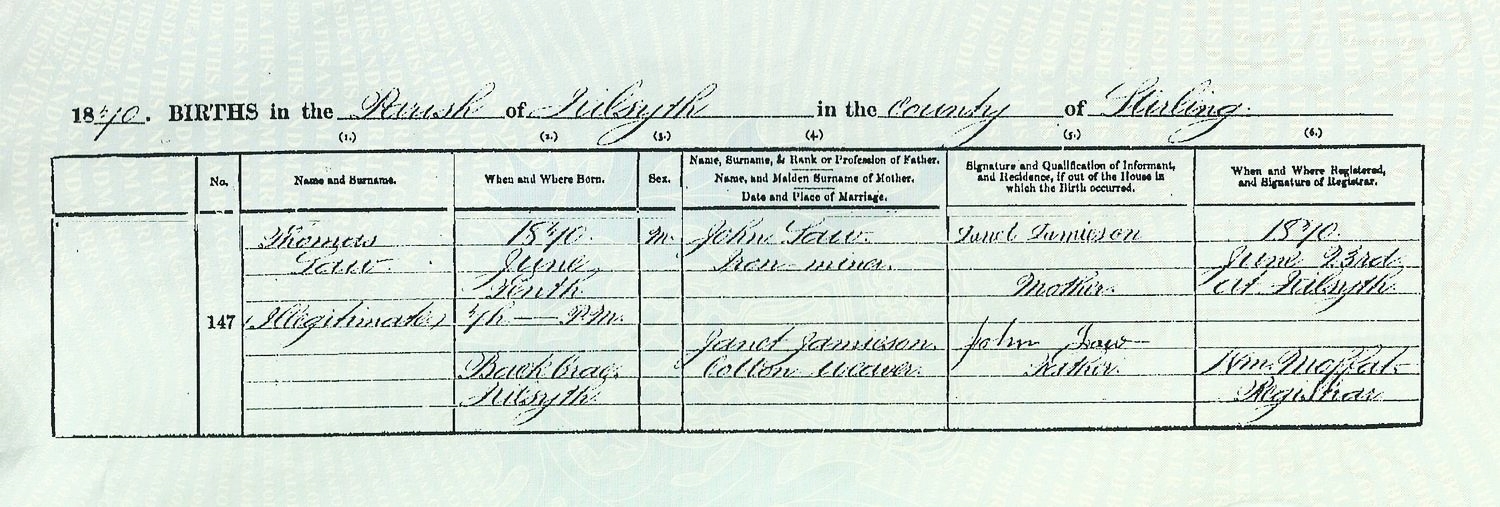 1870. BIRTHS in the Parish of Kilsyth in the County of Stirling.
(1.) (2.) (3.) (4.) (5.) (6.)
No.
Name and Surname.
When and Where Born.
Sex.
Name, Surname, & Rank or Profession of Father.
Name, and Maiden Surname of Mother.
Date and Place of Marriage.
Signature and Qualification of Informant,
and Residence, if out of the House in
which the Birth occurred.
When and Where Registered,
and Signature of Registrar.
147
Thomas
Law
(Illegitimate)
1870.
June,
Tenth
7h — P.M.
Back Brae,
Kilsyth.
M.
John Law.
Iron-miner.
Janet Jamieson.
Cotton Weaver.
Janet Jamieson
Mother.
John Law
Father.
1870.
June 23rd
At Kilsyth
Wm. Moffat
Registrar